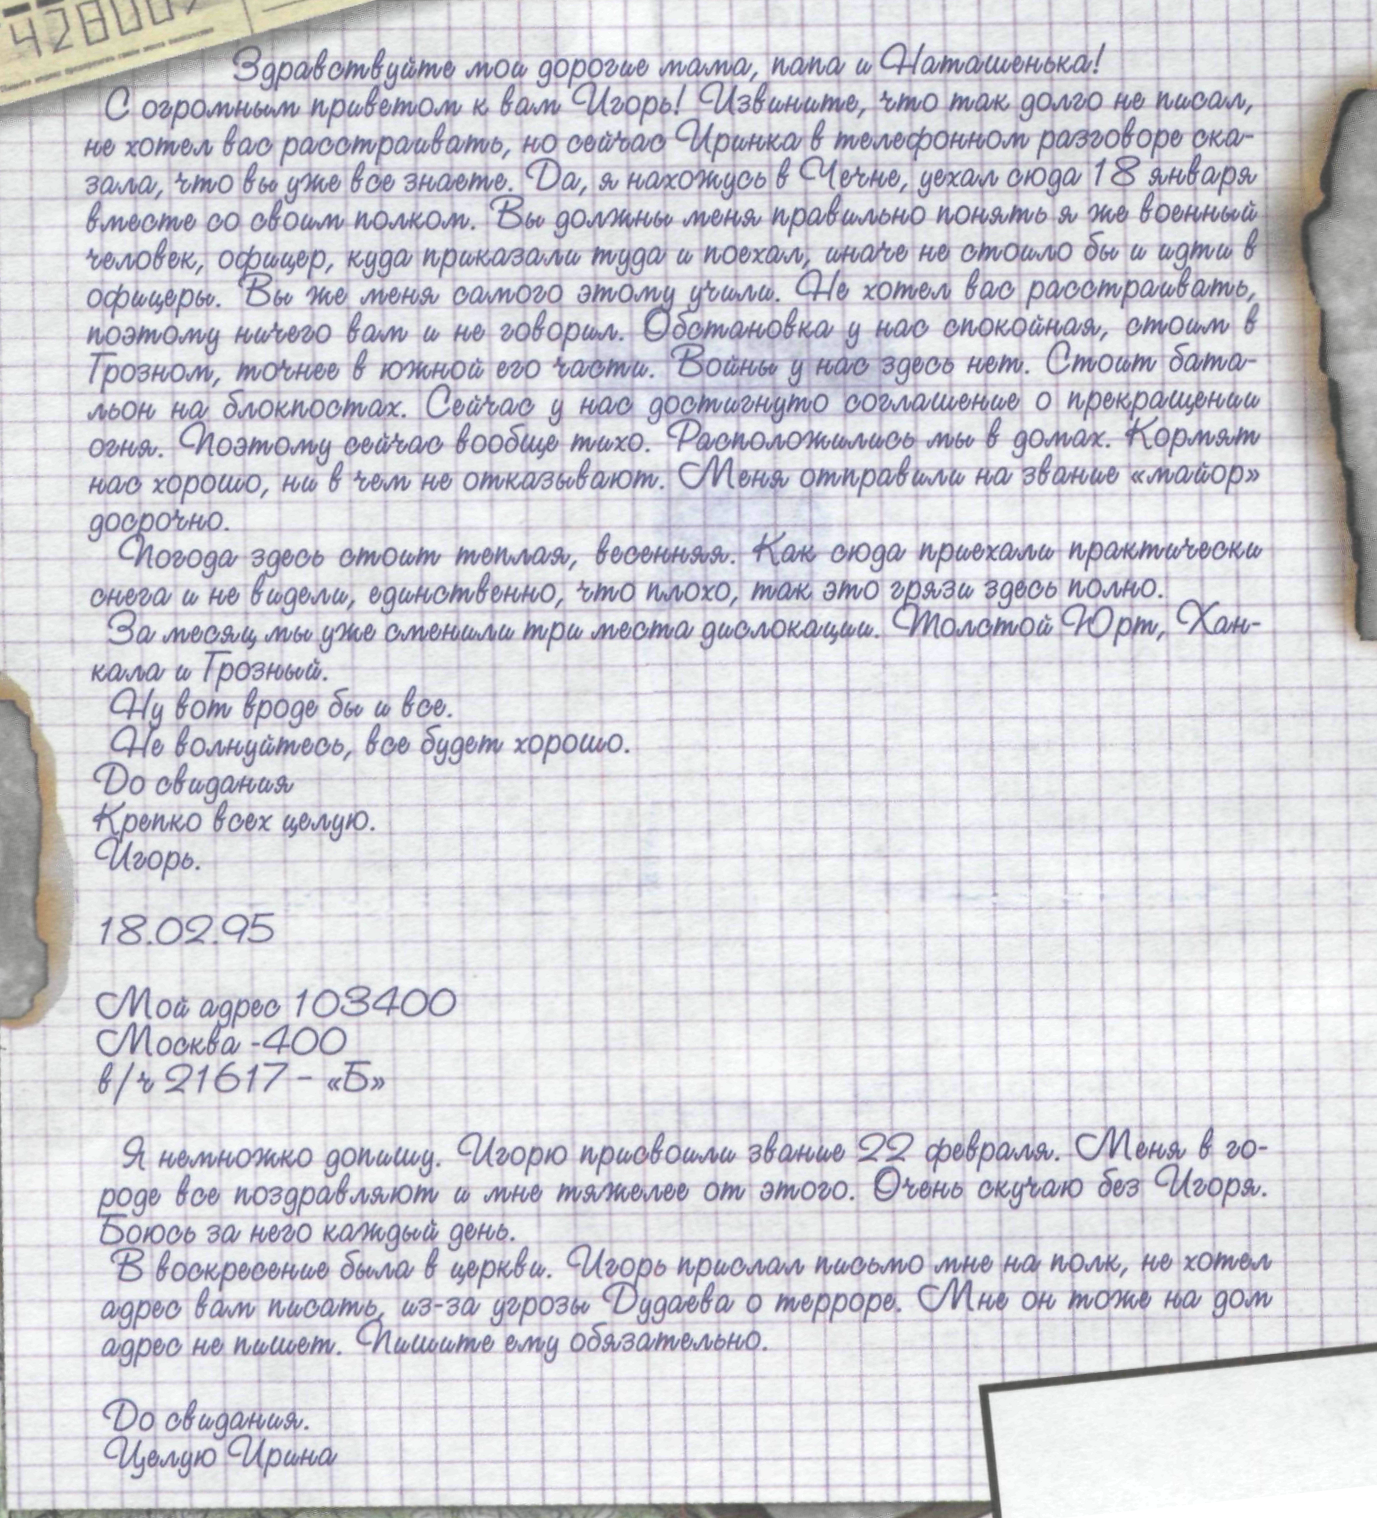 42800
Здравствуйте мои дорогие мама, папа и Наташенька!
С огромным приветом к вам Игорь! Извините, что так долго не писал,
не хотел вас расстраивать, но сейчас Иринка в телефонном разговоре ска-
зала, что вы уже все знаете. Да, я нахожусь в Чечне, уехал сюда 18 января
вместе со своим полком. Вы должны меня правильно понять я же военный
человек, офицер, куда приказали туда и поехал, иначе не стоило бы и идти в
офицеры. Вы же меня самого этому учили. Не хотел вас расстраивать,
поэтому ничего вам и не говорил. Обстановка у нас спокойная, стоим в
Грозном, точнее в южной его части. Войны у нас здесь нет. Стоит бата-
льон на блокпостах. Сейчас у нас достигнуто соглашение о прекращении
огня. Поэтому сейчас вообще тихо. Расположились мы в домах. Кормят
нас хорошо, ни в чем не отказывают. Меня отправили на звание «майор»
досрочно.
Погода здесь стоит теплая, весенняя. Как сюда приехали практически
снега и не видели, единственно, что плохо, так это грязи здесь полно.
За месяц мы уже сменили три места дислокации. Толстой Юрт, Хан-
кала и Грозный.
Ну вот вроде бы и все.
Не волнуйтесь, все будет хорошо.
До свидания
Крепко всех целую.
Игорь.
18.02.95
Мой адрес 103400
Москва -400
в/ч 21617 - «Б»
Я немножко допишу. Игорю присвоили звание 22 февраля. Меня в го-
роде все поздравляют и мне тяжелее от этого. Очень скучаю без Игоря.
Боюсь за него каждый день.
В воскресение была в церкви. Игорь прислал письмо мне на полк, не хотел
адрес вам писать, из-за угрозы Дудаева о терроре. Мне он тоже на дом
адрес не пишет. Пишите ему обязательно.
До свидания.
Целую Ирина